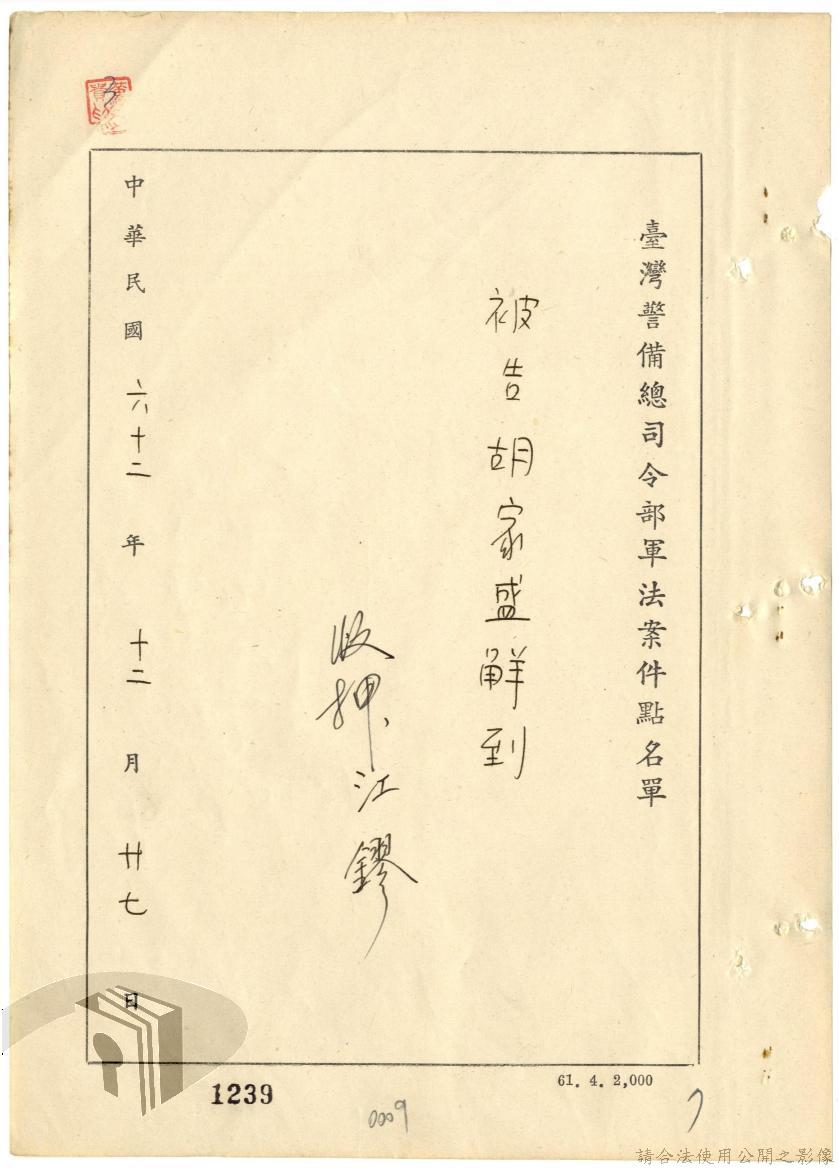 臺灣警備總司令部軍法案件點名單
被告胡家盛解到
收押、江鏐
中華民國六十二年十二月廿七日
1239
0009
61. 4. 2,000
7
請合法使用公開之影像